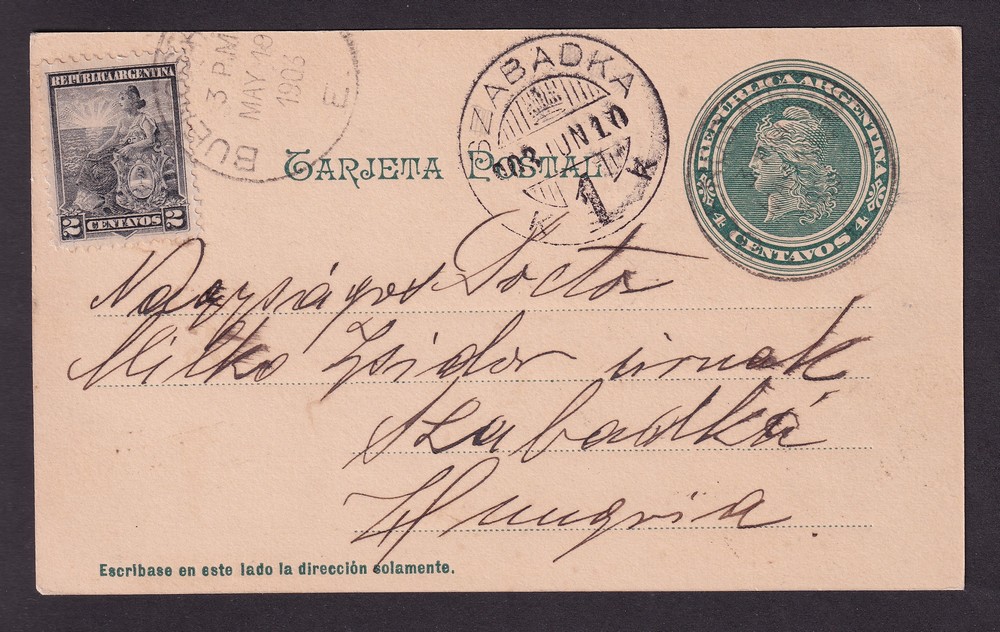 REPÚBLICA ARGENTINA
2 CENTAVOS 2
BUE
3 P.M
MAY 10
1903
E.
SZABADKA
903 JUN 10
1 K
TARJETA POSTAL
REPUBLICA ARGENTINA
4 CENTAVOS 4
Nagyságos Doctor
Milkó Izsidor úrnak
Szabadka
Hungria
Escribase en este lado la dirección solamente.